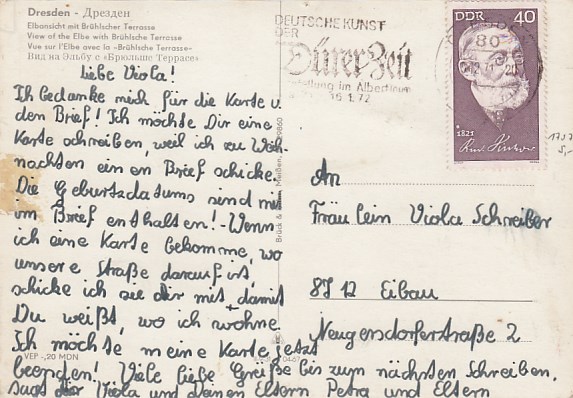 Dresden - Дрезден
Elbansicht mit Brühlscher Terrasse
View of the Elbe with Brühlsche Terrasse
Vue sur l'Elbe avec la »Brühlsche Terrasse«
Вид на Эльбу с «Брюльше Террасе»
Liebe Viola!
Ich bedanke mich für die Karte u
den Brief! Ich möchte Dir eine
Karte schreiben, weil ich zu Weih-
nachten einen Brief schicke.
Die Geburtsdatums sind mit
im Brief enthalten! - Wenn
ich eine Karte bekomme, wo
unsere Straße darauf ist,
schicke ich sie dir mit + damit
Du weißt, wo ich wohne
Ich möchte meine Karte jetzt
beenden! Viele liebe Grüße bis zum nächsten Schreiben.
sagt dir Viola und Deinen Eltern Petra und Eltern
VEP -,20 MDN
Brück & Sohn, Meißen
DEUTSCHE KUNST
DER
Dürer Zeit
Ausstellung im Albertinum
16.1.72
DDR 40
80
1821
An
Fräulein Viola Schreiber
8712 Eibau
Neugersdorferstraße 2